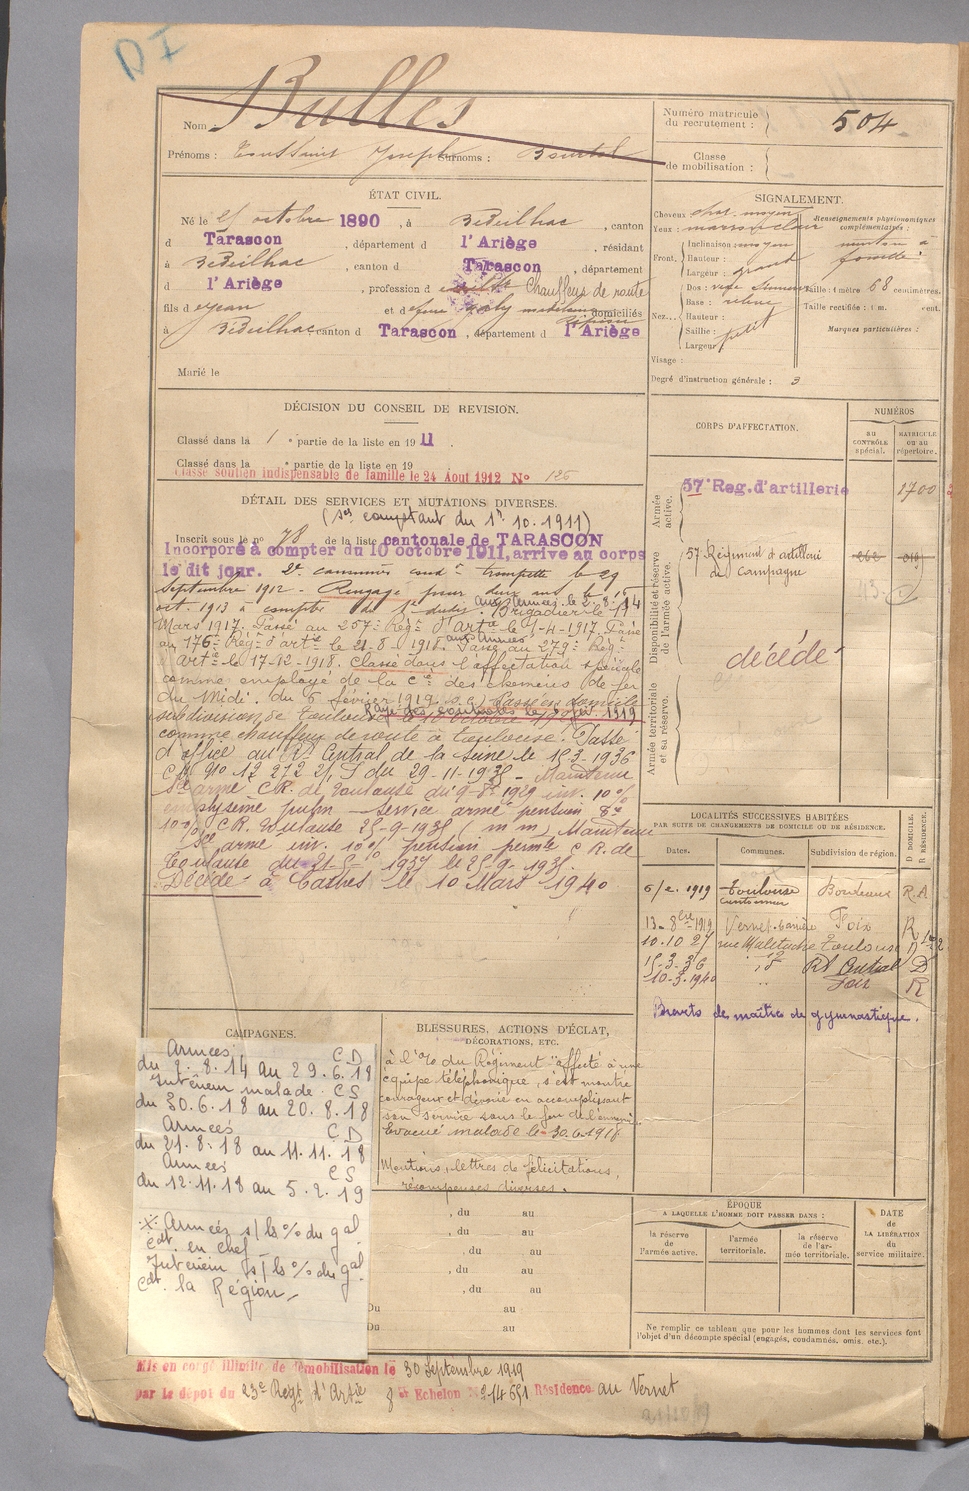 DI
Nom : Bulles
Prénoms : Toussaint Joseph Surnoms :
Numéro matricule du recrutement : 504
Classe de mobilisation :
ÉTAT CIVIL.
Né le octobre 1890, à Bédeilhac, canton
d Tarascon, département d l'Ariège, résidant
à Bédeilhac, canton d Tarascon, département
d l'Ariège, profession d Chauffeur de route
fils d Jean et d domiciliés
à Bédeilhac canton d Tarascon, département d l'Ariège
Marié le
SIGNALEMENT.
Cheveux chat. moyen
Yeux : marron clair
Renseignements physionomiques complémentaires :
menton à fossette
Front. Inclinaison moyen
Hauteur :
Largeur : grand
Nez... Dos :
Base :
Hauteur :
Saillie :
Largeur petit
Taille : 1 mètre 68 centimètres.
Taille rectifiée : 1 m. cent.
Marques particulières :
Visage :
Degré d'instruction générale : 3
DÉCISION DU CONSEIL DE REVISION.
Classé dans la 1 e partie de la liste en 1911.
Classé dans la e partie de la liste en 19
Classé soutien indispensable de famille le 24 Août 1912 No 126
DÉTAIL DES SERVICES ET MUTATIONS DIVERSES.
(Ses comptant du 1er 10.1911)
Inscrit sous le no 78 de la liste cantonale de TARASCON
Incorporé à compter du 10 octobre 1911, arrive au corps
le dit jour. 2e trompette le 29
Septembre 1912 - Rengagé pour deux ans le 15
oct. 1913 à compter du 1er dudit. aux Armées le 2-8-14 Brigadier le
Mars 1917. Passé au 257e Régt d'Artie le 1-4-1917. Passé
au 176e Régt d'artie le 21-8-1918. aux Armées Passé au 279e Régt
d'Artie le 17-12-1918. Classé dans l'affectation spéciale
comme employé de la Cie des chemins de fer
du Midi. du 6 février 1919. Passé en domicile
subdivision de Toulouse Rayé des contrôles le 1919
comme chauffeur de route à Toulouse. Passé
d'office au Rt Central de la Seine le 15-3-1936
du 29-11-1935 - Maintenu
Sce armé C.R. de Toulouse du 9-8-1929 inv. 10%
emphysème pulm - Service armé pension
10% C.R. Toulouse 25-9-1935 (m m) Maintenu
Sce armé inv. 10% pension permte C.R. de
Toulouse du 1937 le 25-9-1935.
Décédé à Castres le 10 Mars 1940
CORPS D'AFFECTATION.
NUMÉROS
AU CONTRÔLE spécial.
MATRICULE ou au répertoire.
Armée active.
57e Reg. d'artillerie 1700
Disponibilité et réserve de l'armée active.
57 Régiment d'artillerie de Campagne
décédé
Armée territoriale et sa réserve.
LOCALITÉS SUCCESSIVES HABITÉES
PAR SUITE DE CHANGEMENTS DE DOMICILE OU DE RÉSIDENCE.
Dates. Communes. Subdivision de région. D DOMICILE. R RÉSIDENCE.
6/2.1919 Toulouse Bordeaux R.A
13-8bre-1919 Vernet Foix R
10.10 27 rue Toulouse D
15-3-36 Rt Central D
10-3-1940 Foix R
Brevets de maître de gymnastique.
CAMPAGNES.
Armées C D
du 2.8.14 au 29.6.18
Intérieur malade. C S
du 30.6.18 au 20.8.18
Armées C D
du 21.8.18 au 11.11.18
Armées C S
du 12.11.18 au 5.2.19
Armées s/ls % du gal
cdt. en chef -
Intérieur s/ls % du gal
cdt. la Région -
BLESSURES, ACTIONS D'ÉCLAT,
DÉCORATIONS, ETC.
à l'% du Régiment "affecté à une
équipe téléphonique, s'est montré
courageux et dévoué en accomplissant
son service sous le feu de l'ennemi.
Evacué malade le 30.6.1918
Mentions, lettres de félicitations,
récompenses diverses.
, du au
, du au
, du au
, du au
, du au
Du au
Du au
ÉPOQUE
A LAQUELLE L'HOMME DOIT PASSER DANS :
la réserve de l'armée active.
l'armée territoriale.
la réserve de l'armée territoriale.
DATE de LA LIBÉRATION du service militaire.
Ne remplir ce tableau que pour les hommes dont les services font
l'objet d'un décompte spécial (engagés, condamnés, omis, etc.).
Mis en congé illimité de démobilisation le 30 Septembre 1919
par le dépôt du 23e Regt d'Artie Echelon Résidence au Vernet